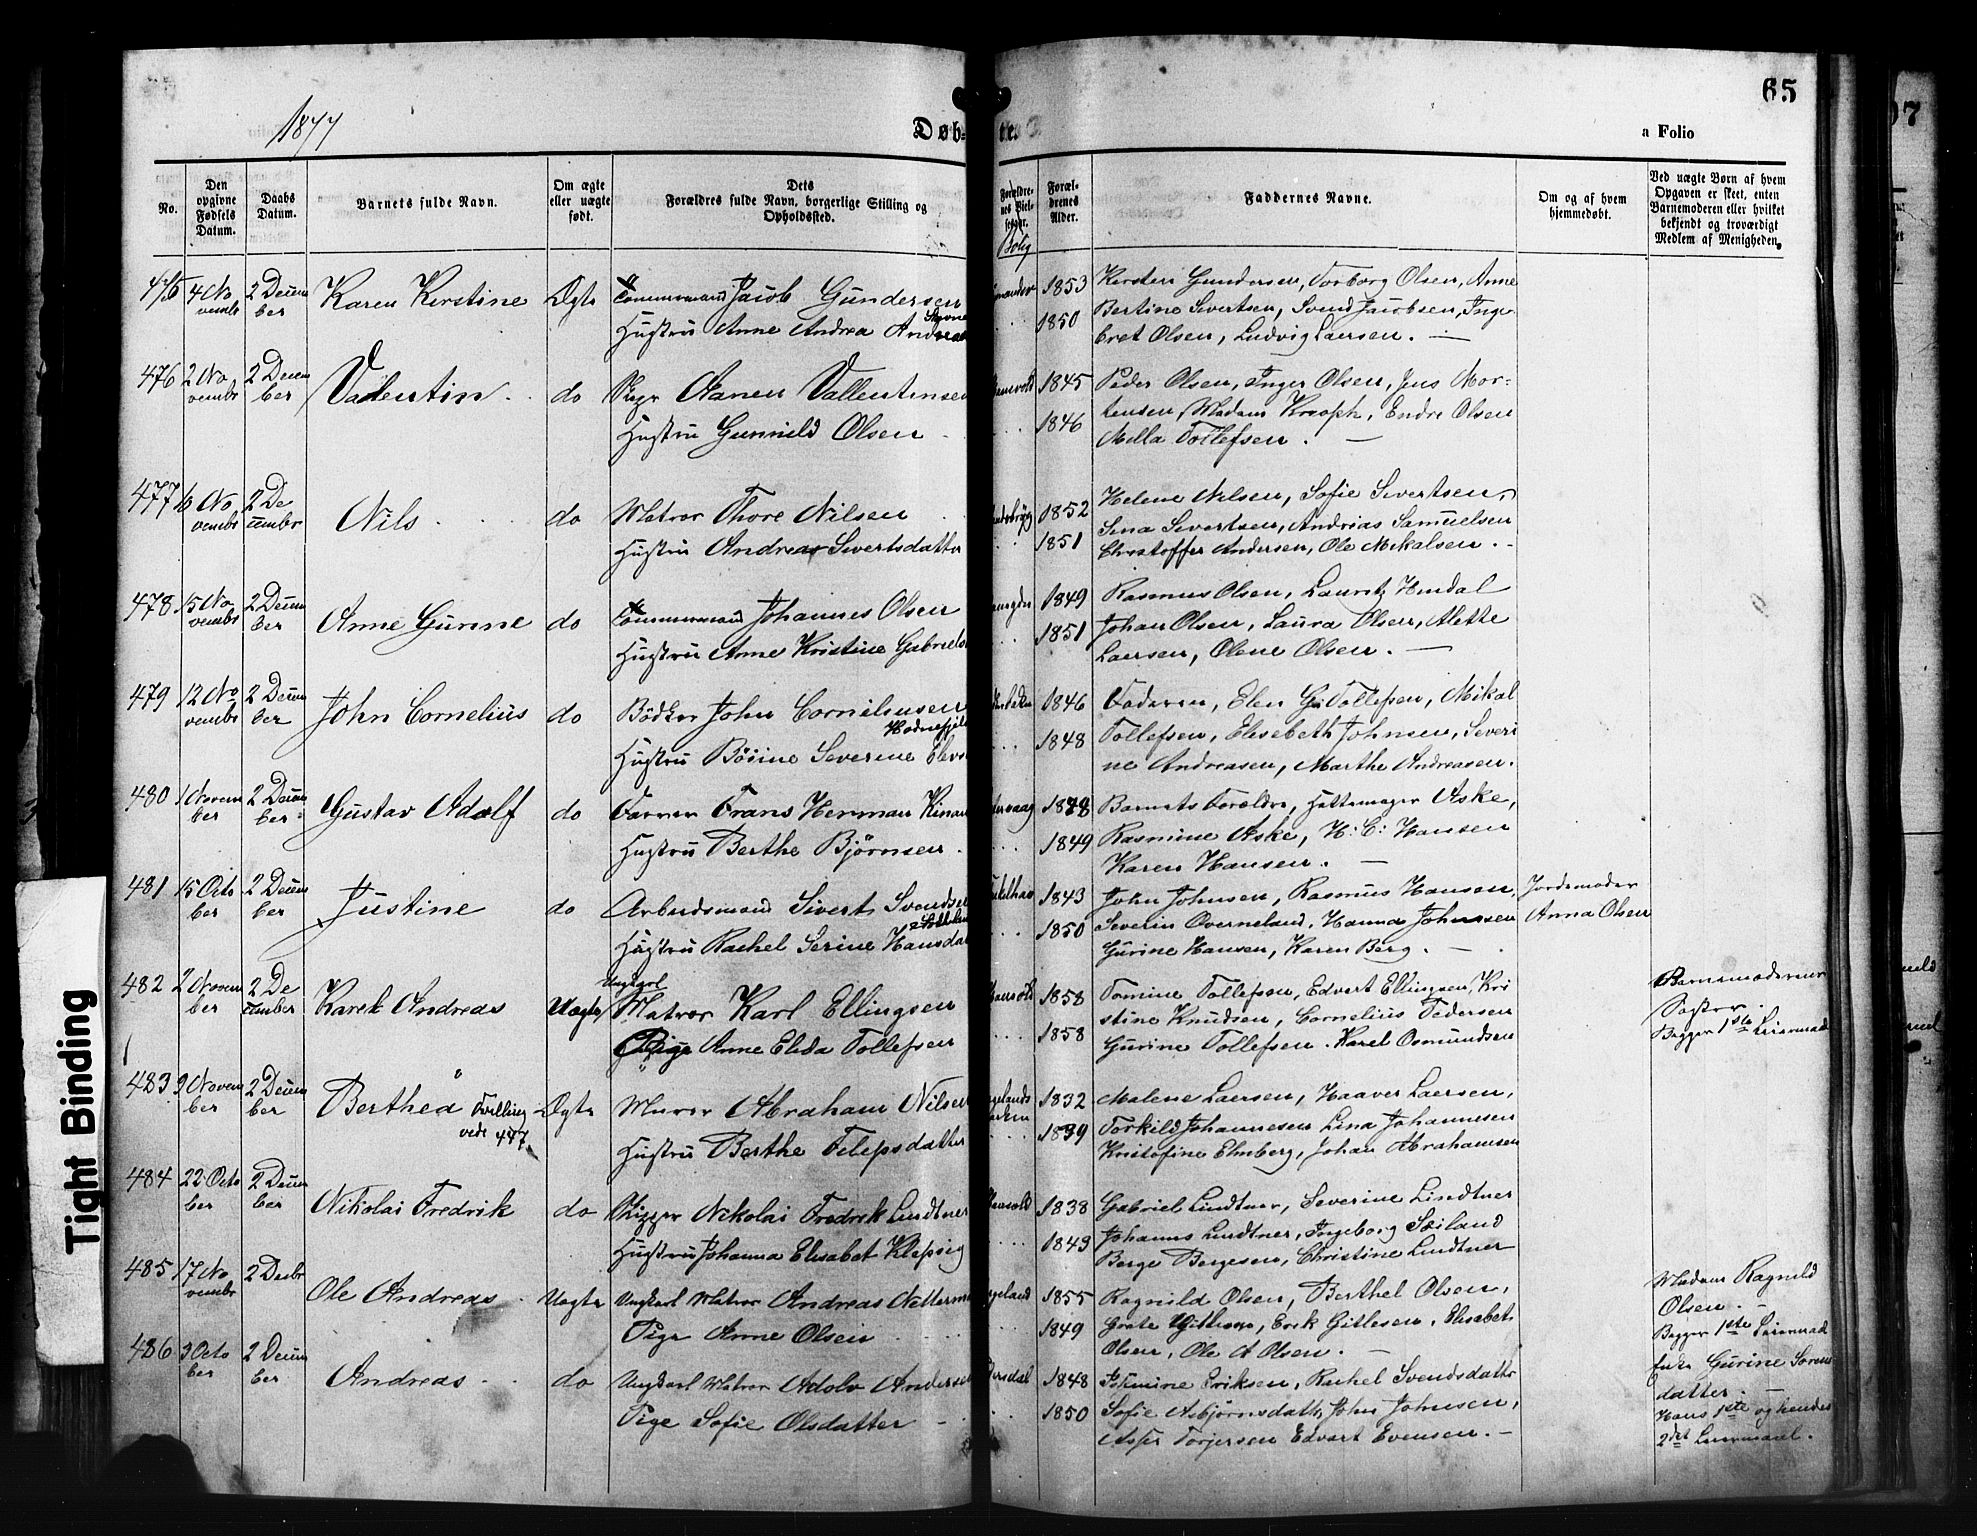 65
1877
Døb-
te.
a Folio
No.
Den opgivne Fødsels Datum.
Daabs Datum.
Barnets fulde Navn.
Om ægte eller uægte født.
Dets
Forældres fulde Navn, borgerlige Stilling og Opholdssted.
Forældrenes Alder.
Faddernes Navne.
Om og af hvem hjemmedøbt.
Ved uægte Børn af hvem Opgaven er skeet, enten Barnemoderen eller hvilket bekjendt og troværdigt Medlem af Menigheden.
Bolig
475 4 November 2 December Karen Kirstine Ægte Tømmermand Jacob Gundersen 1853 Kirsten Gundersen, Torborg Olsen, Anne
Hustru Anne Andrea 1850 Bertine Sivertsen, Svend Jacobsen, Inge-
bret Olsen, Ludvig Laersen. —
476 2 November 2 December Valentin do Aanen Vallentinsen 1845 Peder Olsen, Inger Olsen, Jens Mor-
Hustru Gunnild Olsen 1846 tensen, Madam Krooph, Endre Olsen
Mella Tollefsen. —
477 2 December Nils do Matros Thore Nilsen 1852 Helene Nilsen, Sofie Sivertsen,
Hustru Andrea Sivertsdatter 1851 Sina Sivertsen, Andrias Samuelsen
Christoffer Andersen, Ole Mikalsen. -
478 15 November 2 December Anne Gunne do Tømmermand Johannes Olsen 1849 Rasmus Olsen, Lauritz Hendal
Hustru Anne Kristine 1851 Johan Olsen, Laura Olsen, Alette
Laersen, Olene Olsen. —
479 12 November 2 December John Cornelius do Bødker John Corneliusen 1846 Faderen, Elen G. Tollefsen, Mikal
Hustru Severine 1848 Tollefsen, Elisebeth Johnsen, Severi
ne Andreasen, Marthe Andreasen.
480 1 November 2 December Gustav Adolf do Farver Frans Herman Kinau Barnets Forældre, Hattemager Aske,
Hustru Berthe Bjørnsen. 1849 Rasmine Aske, H: C: Hansen
Karen Hansen. —
481 15 October 2 December Justine do Arbeidsmand Sivert Svendsen 1843 John Johnsen, Rasmus Hansen, Jordemoder
Hustru Rachel Serine Hansda 1850 Severin Overneland, Hanna Johnsen Anna Olsen
Gurine Hansen, Karen Berg. —
482 2 November 2 December Karel Andreas Uægte Ungkarl
Matros Karl Ellingsen 1858 Tomine Tollefsen, Edvert Ellingsen, Kri Barnemoderens
Pige Anne Elida Tollefsen 1858 stine Knudsen, Cornelius Pedersen Søster.
Gurine Tollefsen. Karel Osmundsen Begges 1ste Leiermaal
483 9 November 2 December Berthea Tvilling Ægte Murer Abraham Nilsen 1832 Malene Laersen, Haaver Laersen,
vide 447 Hustru Berthe Filepsdatter 1839 Torkild Johannesen, Lina Johannesen
Kristofine Elmberg, Johan Abrahamsen
484 22 October 2 December Nikolai Fredrik do Rigger Nikolai Fredrik Lindtner 1838 Gabriel Lindtner, Severine Lindtner
Hustru Johanna Elisabet Klepsig 1843 Johanns Lindtner, Ingeborg Soiland
Berge Bergesen, Christine Lindtner
485 17 November 2 Decbr Ole Andreas Uægte Ungkarl Matros Andreas 1855 Ragnild Olsen, Berthel Olsen, Madam Ragnild
Pige Anne Olsen 1849 Grete Gitlesen, Erik Gitlesen, Elisabet Olsen. —
Olsen, Ole A Olsen. — Begges 1ste Leiermaal
486 3 October 2 December Andreas do Ungkarl Matros Adolv Andersen 1848 Eriksen, Rachel Svendsdatter Enke Gurine Sorens
datter. —
Pige Sofie Olsdatter 1850 Sofie Asbjørnsdatter, John Johnsen, Hans 1ste og hendes
Torjersen Edvart Evensen. — 2det Leiermaal.
Tight Binding